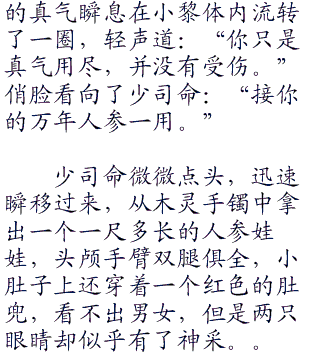 的真气瞬息在小黎体内流转
了一圈，轻声道：“你只是
真气用尽，并没有受伤。”
俏脸看向了少司命：“接你
的万年人参一用。”
少司命微微点头，迅速
瞬移过来，从木灵手镯中拿
出一个一尺多长的人参娃
娃，头颅手臂双腿俱全，小
肚子上还穿着一个红色的肚
兜，看不出男女，但是两只
眼睛却似乎有了神采。。